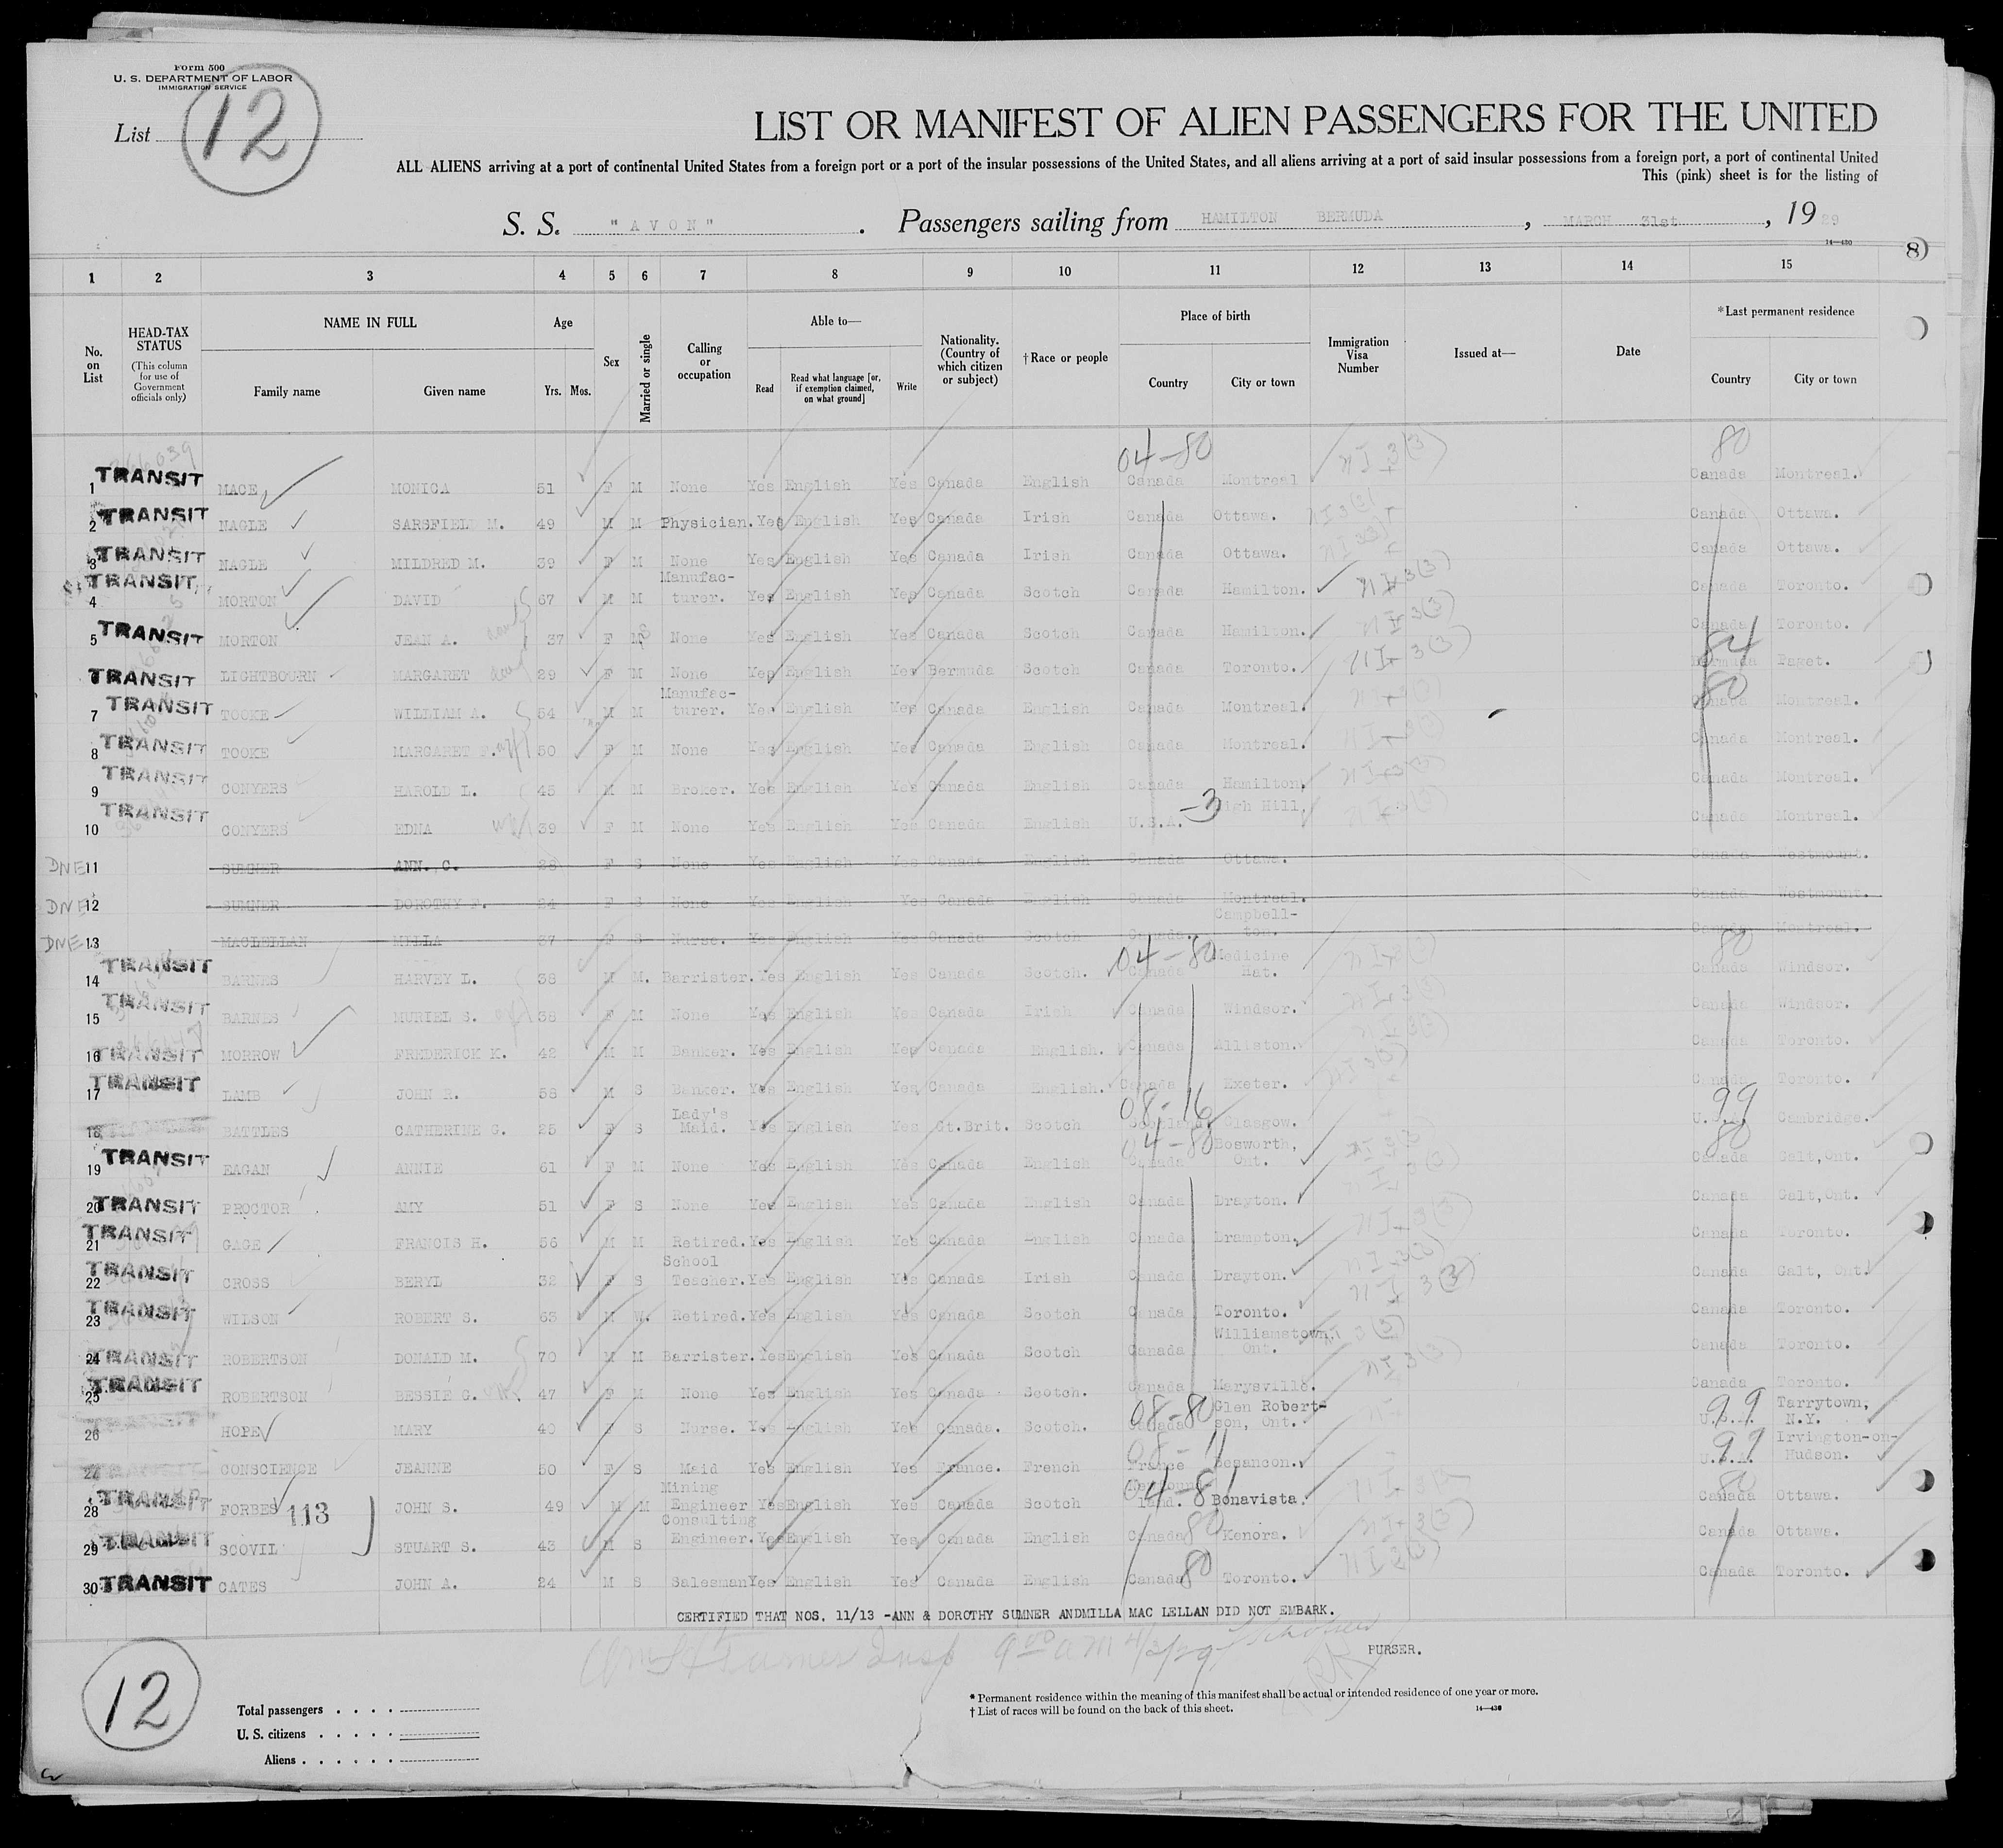 Form 500
U. S. DEPARTMENT OF LABOR
IMMIGRATION SERVICE
List 12
LIST OR MANIFEST OF ALIEN PASSENGERS FOR THE UNITED
ALL ALIENS arriving at a port of continental United States from a foreign port or a port of the insular possessions of the United States, and all aliens arriving at a port of said insular possessions from a foreign port, a port of continental United
This (pink) sheet is for the listing of
S. S. "AVON". Passengers sailing from HAMILTON BERMUDA, MARCH 31st, 1929
14—430
8)
1 2 3 4 5 6 7 8 9 10 11 12 13 14 15
No. on List
HEAD-TAX STATUS (This column for use of Government officials only)
NAME IN FULL Family name Given name
Age Yrs. Mos.
Sex
Married or single
Calling or occupation
Able to— Read Read what language [or, if exemption claimed, on what ground] Write
Nationality. (Country of which citizen or subject)
†Race or people
Place of birth Country City or town
Immigration Visa Number
Issued at—
Date
*Last permanent residence Country City or town
04-80 80
1 TRANSIT MACE MONICA 51 F M None Yes English Yes Canada English Canada Montreal NI 3(3) Canada Montreal.
2 TRANSIT NAGLE SARSFIELD M. 49 M M Physician. Yes English Yes Canada Irish Canada Ottawa. NI 3(3) Canada Ottawa.
3 TRANSIT NAGLE MILDRED M. 39 F M None Yes English Yes Canada Irish Canada Ottawa. NI 3(3) Canada Ottawa.
4 TRANSIT MORTON DAVID 67 M M Manufac-turer. Yes English Yes Canada Scotch Canada Hamilton. NI 3(3) Canada Toronto.
5 TRANSIT MORTON JEAN A. 37 F M S None Yes English Yes Canada Scotch Canada Hamilton. NI 3(3) Canada Toronto.
6 TRANSIT LIGHTBOURN MARGARET 29 F M None Yes English Yes Bermuda Scotch Canada Toronto. NI 3(3) 84 Bermuda Paget.
7 TRANSIT TOOKE WILLIAM A. 54 M M Manufac-turer. Yes English Yes Canada English Canada Montreal. 80 Canada Montreal.
8 TRANSIT TOOKE MARGARET F. wf 50 F M None Yes English Yes Canada English Canada Montreal. Canada Montreal.
9 TRANSIT CONYERS HAROLD L. 45 M M Broker. Yes English Yes Canada English Canada Hamilton. Canada Montreal.
10 TRANSIT CONYERS EDNA wf 39 F M None Yes English Yes Canada English U.S.A. -3 High Hill, Canada Montreal.
DNE 11 SUMNER ANN. C. 28 F S None Yes English Yes Canada English Canada Ottawa. Canada Westmount.
DNE 12 SUMNER DOROTHY F. 24 F S None Yes English Yes Canada English Canada Montreal. Canada Westmount.
DNE 13 MACLELLAN MILLA 37 F S Nurse. Yes English Yes Canada Scotch Canada. Campbell-ton. Canada Montreal.
14 TRANSIT BARNES HARVEY L. 38 M M. Barrister. Yes English Yes Canada Scotch. 04-80 Canada Medicine Hat. 80 Canada Windsor.
15 TRANSIT BARNES MURIEL S. 38 F M None Yes English Yes Canada Irish Canada Windsor. Canada Windsor.
16 TRANSIT MORROW FREDERICK K. 42 M M Banker. Yes English Yes Canada English. Canada Alliston. Canada Toronto.
17 TRANSIT LAMB JOHN R. 58 M S Banker. Yes English Yes Canada English. Canada Exeter. Canada Toronto.
18 BATTLES CATHERINE G. 25 F S Lady's Maid. Yes English Yes Gt.Brit. Scotch 08-16 Scotland Glasgow. 99 U.S.A. Cambridge.
19 TRANSIT EAGAN ANNIE 61 F M None Yes English Yes Canada English 04-80 Canada Bosworth, Ont. 80 Canada Galt,Ont.
20 TRANSIT PROCTOR AMY 51 F S None Yes English Yes Canada English Canada Drayton. Canada Galt,Ont.
21 TRANSIT GAGE FRANCIS H. 56 M M Retired. Yes English Yes Canada English Canada Brampton. NI 3(3) Canada Toronto.
22 TRANSIT CROSS BERYL 32 F S School Teacher. Yes English Yes Canada Irish Canada Drayton. NI 3(3) Canada Galt, Ont.
23 TRANSIT WILSON ROBERT S. 63 M W. Retired. Yes English Yes Canada Scotch Canada Toronto. NI 3(3) Canada Toronto.
24 TRANSIT ROBERTSON DONALD M. 70 M M Barrister. Yes English Yes Canada Scotch Canada Williamstown, Ont. Canada Toronto.
25 TRANSIT ROBERTSON BESSIE G. 47 F M None Yes English Yes Canada Scotch. Canada Marysville. Canada Toronto.
26 TRANSIT HOPE MARY 40 F S Nurse. Yes English Yes Canada. Scotch. 08-80 Canada Glen Robert-son, Ont. 99 U.S.A. Tarrytown, N.Y.
27 CONSCIENCE JEANNE 50 F S Maid Yes English Yes France. French 08-11 France Besancon. 99 U.S.A. Irvington-on-Hudson.
28 TRANSIT FORBES JOHN S. 49 M M Mining Engineer Yes English Yes Canada Scotch 04-81 Newfoundland. Bonavista. 80 Canada Ottawa.
113
29 TRANSIT SCOVIL STUART S. 43 M S Consulting Engineer. Yes English Yes Canada English Canada 80 Kenora. NI 3(3) Canada Ottawa.
30 TRANSIT CATES JOHN A. 24 M S Salesman Yes English Yes Canada English Canada 80 Toronto. Canada Toronto.
CERTIFIED THAT NOS. 11/13 -ANN & DOROTHY SUMNER ANDMILLA MAC LELLAN DID NOT EMBARK.
PURSER.
12
Total passengers
U. S. citizens
Aliens
* Permanent residence within the meaning of this manifest shall be actual or intended residence of one year or more.
† List of races will be found on the back of this sheet.
14—430